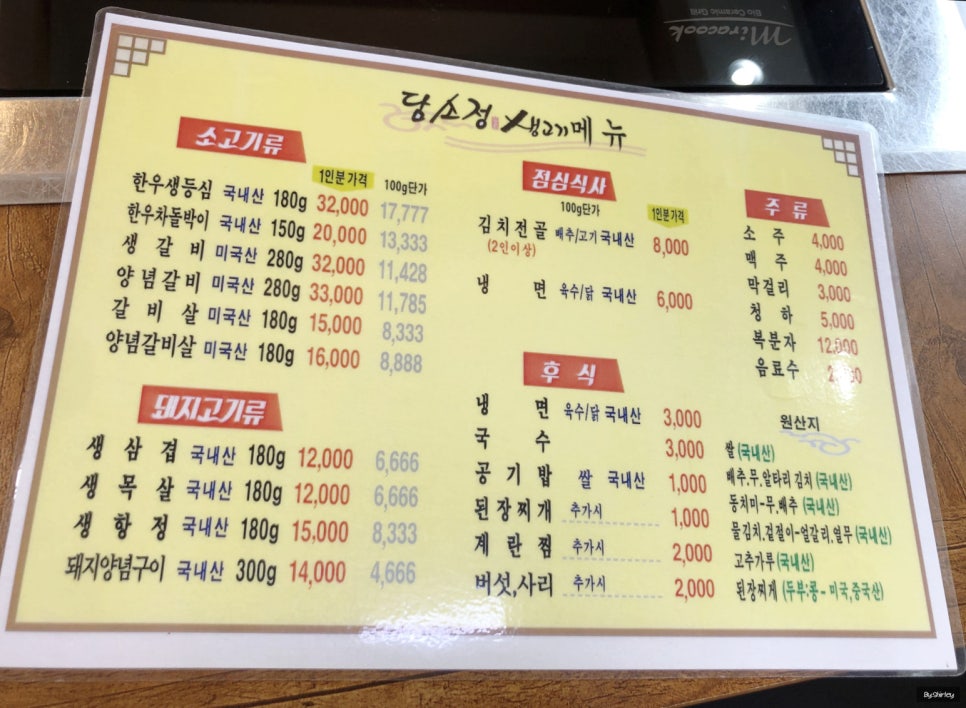 Miracook
Bio Ceramic Grill
당소정 생고기메뉴
소고기류
1인분가격 100g단가
한우생등심 국내산 180g 32,000 17,777
한우차돌박이 국내산 150g 20,000 13,333
생갈비 미국산 280g 32,000 11,428
양념갈비 미국산 280g 33,000 11,785
갈비살 미국산 180g 15,000 8,333
양념갈비살 미국산 180g 16,000 8,888
돼지고기류
생삼겹 국내산 180g 12,000 6,666
생목살 국내산 180g 12,000 6,666
생항정 국내산 180g 15,000 8,333
돼지양념구이 국내산 300g 14,000 4,666
점심식사
100g단가 1인분가격
김치전골 배추/고기 국내산 8,000
(2인이상)
냉면 육수/닭 국내산 6,000
후식
냉면 육수/닭 국내산 3,000
국수 3,000
공기밥 쌀 국내산 1,000
된장찌개 추가시 1,000
계란찜 추가시 2,000
버섯,사리 추가시 2,000
주류
소주 4,000
맥주 4,000
막걸리 3,000
청하 5,000
복분자 12,000
음료수
원산지
쌀(국내산)
배추.무.알타리 김치(국내산)
동치미-무,배추 (국내산)
물김치,겉절이-얼갈리,열무(국내산)
고추가루(국내산)
된장찌개 (두부:콩-미국,중국산)
By.Shirley